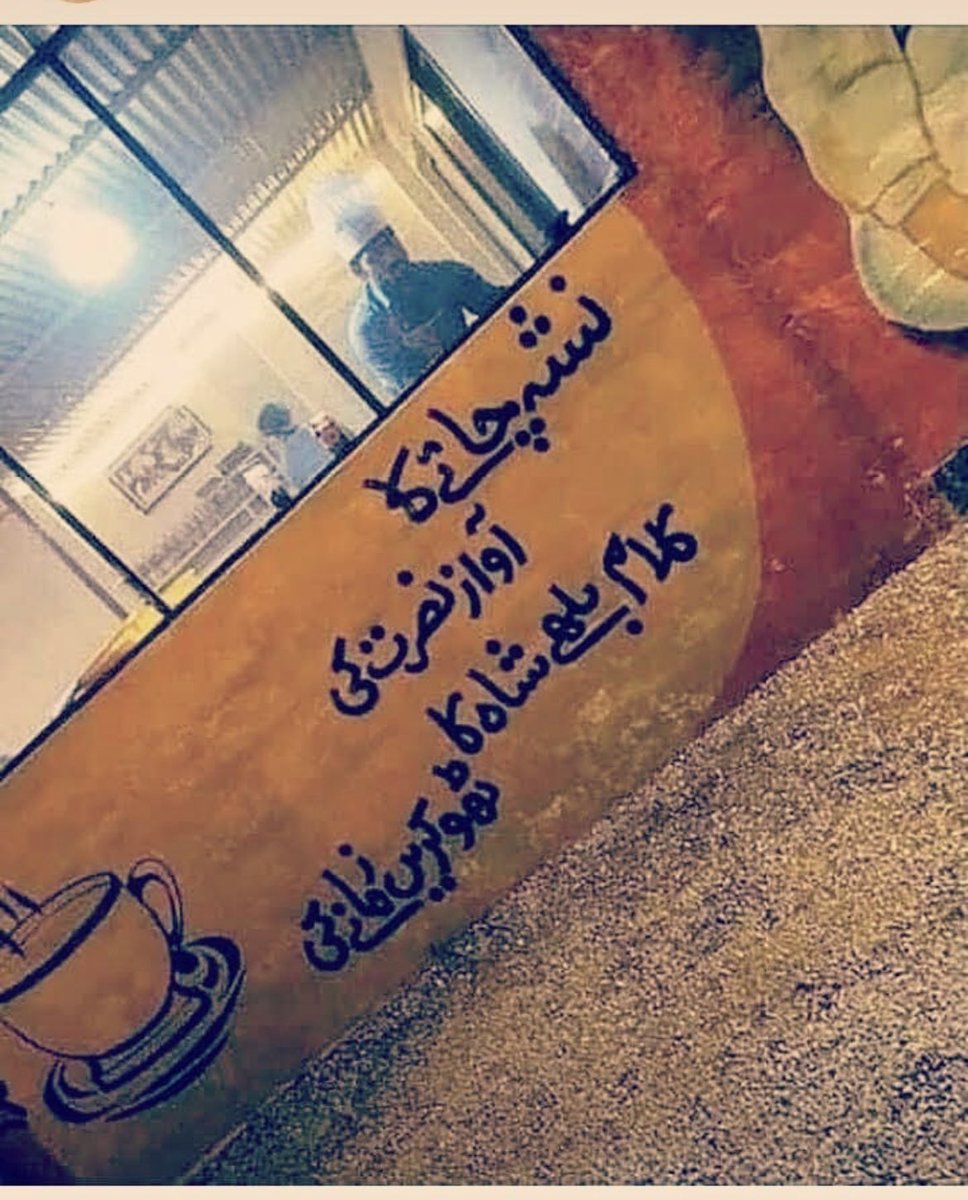 نشہ چائے کا
آواز نصرت کی
کلام بلھے شاہ کا
ٹھوکریں زمانے کی